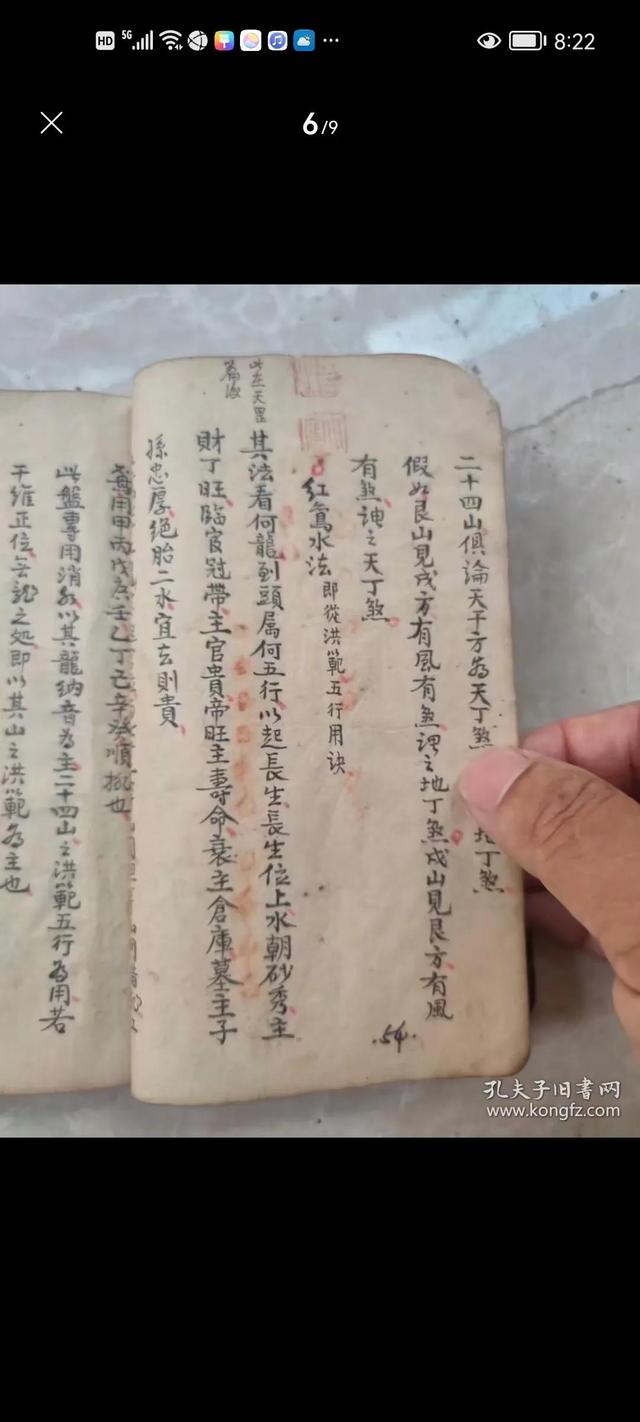 HD 5G 8:22
6/9
二十四山俱論天干方為天丁煞 地丁煞
假如艮山見戌方有風有煞謂之地丁煞戌山見艮方有風
有煞謂之天丁煞
紅鸞水法 即從洪範五行用诀
其法看何龍到頭属何五行以起長生長生位上水朝砂秀主
財丁旺臨官冠帶主官貴帝旺主壽命衰主倉庫墓主子
孫忠厚絕胎二水宜去則貴
此在天罡
篇後
54
每用甲丙戊庚壬乙丁己辛癸順挑也
此盤專用消水以其龍納音為主二十四山之洪範五行為用若
干維正位無龍之处即以其山之洪範為主也
孔夫子旧书网
www.kongfz.com